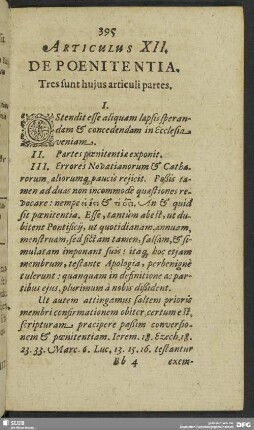 395
ARTICULUS XII.
DE POENITENTIA.
Tres sunt hujus articuli partes.
I.
OStendit esse aliquam lapsis speran-
dam & concedendam in Ecclesia
veniam.
II. Partes pœnitentiæ exponit.
III. Errores Novatianorum & Catha-
rorum, aliorumq; paucis rejicit. Possis ta-
men ad duas non incommodè quæstiones re-
vocare: nempe An & quid
sit pœnitentia. Esse, tantùm abest, ut du-
bitent Pontificij, ut quotidianam, annuam,
menstruam, sed fictam tamen, falsam, & si-
mulatam imponant suis: itaq; hoc etjam
membrum, testante Apologia, perbenignè
tulerunt: quanquam in definitione ac par-
tibus ejus, plurimùm à nobis dissident.
Ut autem attingamus saltem prioris
membri confirmationem obiter, certum est
scripturam præcipere passim conversio-
nem & pœnitentiam. Ierem. 18. Ezech. 18.
23. 33. Marc. 6. Luc. 13. 15. 16. testantur
Bb 4
exem-
SLUB